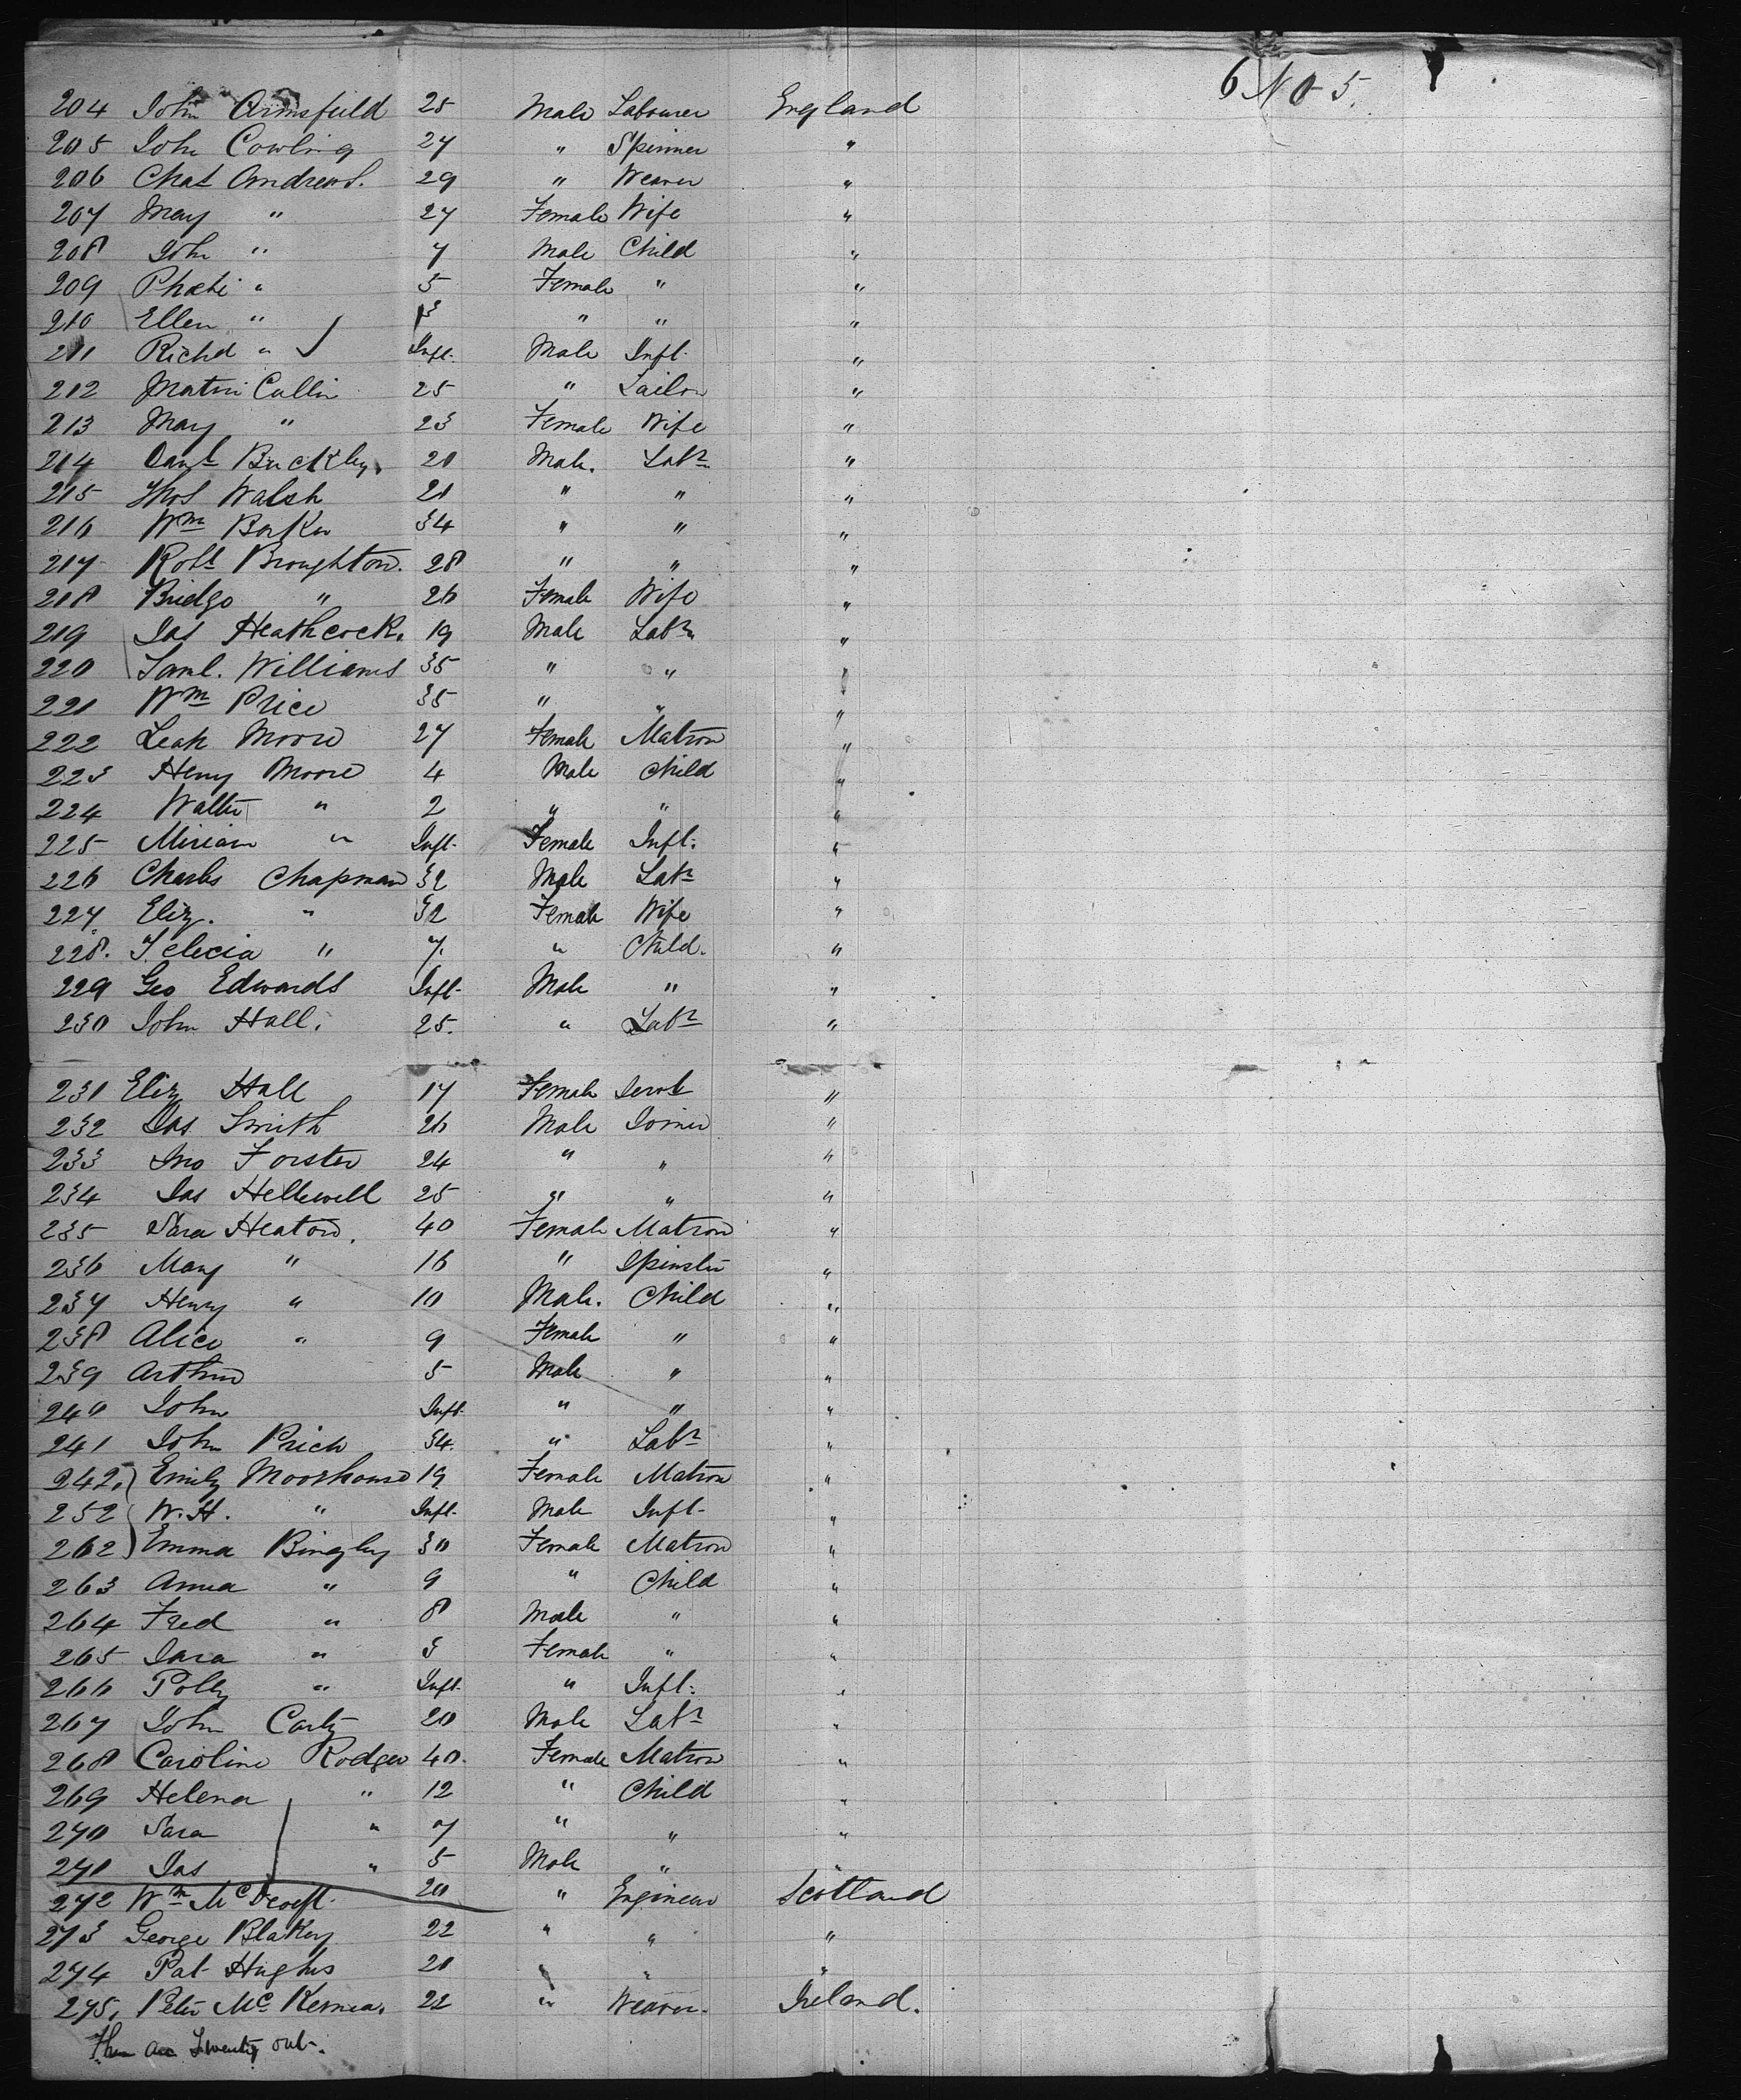 6 No 5.
204 John Armsfield 25 Male Labourer England
205 John Cowling 27 " Spinner "
206 Chas Andrews. 29 " Weaver "
207 Mary " 27 Female Wife "
208 John " 7 Male Child "
209 Phœbe " 5 Female " "
210 Ellen " 3 " " "
211 Richd " Inft. Male Inft. "
212 Martin Cullin 25 " Tailor "
213 Mary " 23 Female Wife "
214 Danl Buckley, 21 Male. Labr "
215 Thos Walsh 21 " " "
216 Wm Barker 34 " " "
217 Robt Broughton. 28 " " "
218 Bridgt " 26 Female Wife "
219 Jas Heathcock. 19 Male Labr "
220 Saml. Williams 35 " " "
221 Wm Price 35 " " "
222 Leah Moore 27 Female Matron "
223 Henry Moore 4 Male Child "
224 Walter " 2 " " "
225 Miriam " Inft. Female Inft. "
226 Charles Chapman 32 Male Labr "
227 Eliz. " 32 Female Wife "
228. Felecia " 7. " Child. "
229 Geo Edwards Inft. Male " "
230 John Hall. 25. " Labr "
231 Eliz Hall 17 Female Servt "
232 Jas Smith 26 Male Joiner "
233 Jno Forster 24 " " "
234 Jas Hellewell 25 " " "
235 Sara Heaton. 40 Female Matron "
236 Mary " 16 " Spinster "
237 Henry " 10 Male. Child "
238 Alice " 9 Female " "
239 Arthur 5 Male " "
240 John Inft. " " "
241 John Price 34. " Labr "
242. Emily Moorhouse 19 Female Matron "
252 W.H. " Inft. Male Inft. "
262 Emma Bingley 30 Female Matron "
263 Anna " 9 " Child "
264 Fred " 8 Male " "
265 Sara " 3 Female " "
266 Polly " Inft. " Inft. "
267 John Carty 20 Male Labr "
268 Caroline Rodger 40. Female Matron "
269 Helena " 12 " Child "
270 Sara " 7 " " "
271 Jas " 5 Male " "
272 Wm Mc 20 " Engineer Scotland
273 George Blakey 22 " " "
274 Pat Hughes 21 " " "
275, Peter Mc Kenna. 22 " Weaver. Ireland.
There are Twenty out.